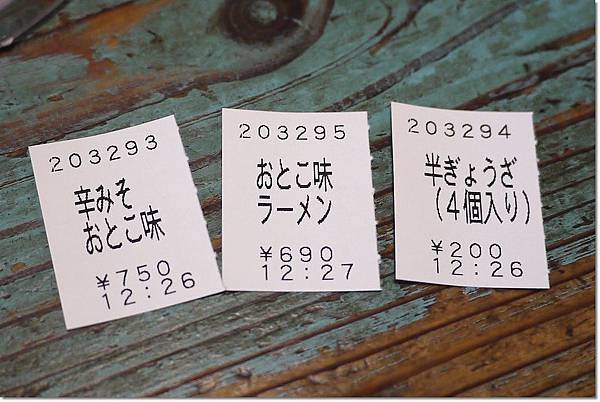 203293
辛みそ
おとこ味
¥750
12:26
203295
おとこ味
ラーメン
¥690
12:27
203294
半ぎょうざ
(4個入り)
¥200
12:26